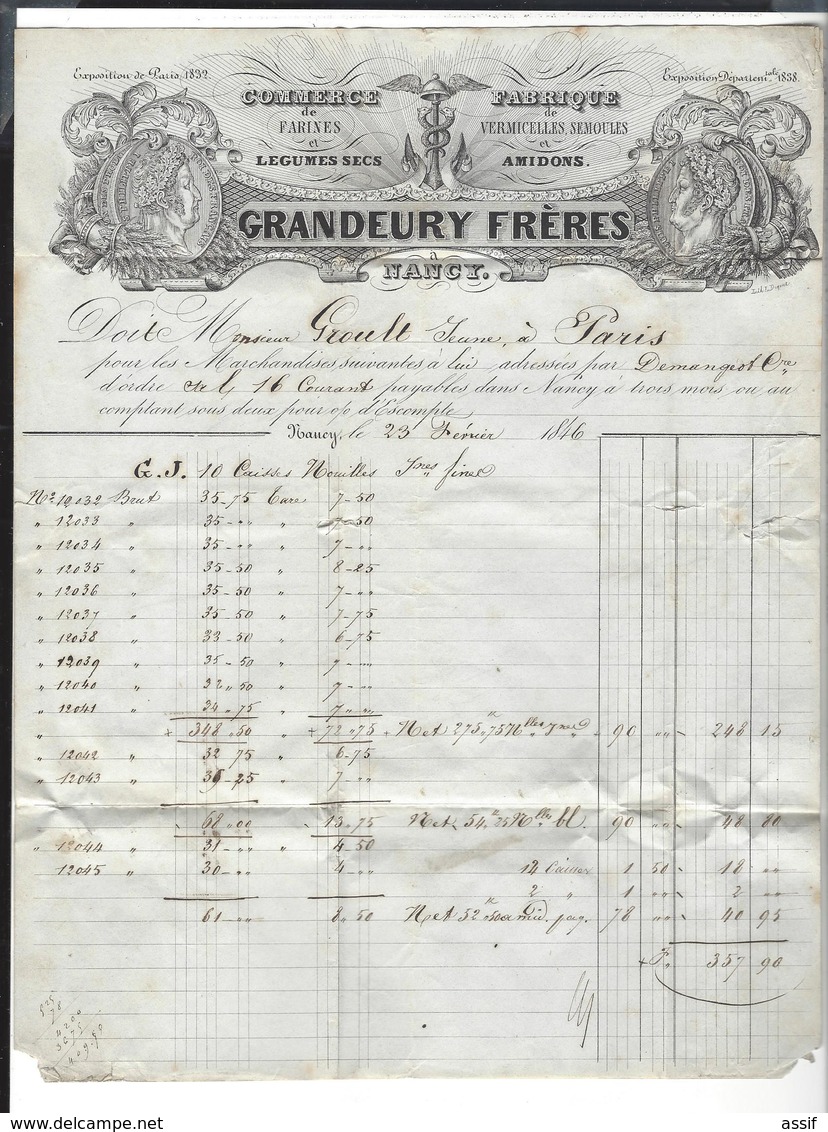 Exposition de Paris, 1832.
Exposition Départem.tale 1838.
COMMERCE
de
FARINES
et
LEGUMES SECS
FABRIQUE
de
VERMICELLES, SEMOULES
et
AMIDONS.
GRANDEURY FRÈRES
à
NANCY.
Doit Monsieur Groult Jeune, à Paris
pour les Marchandises suivantes à lui adressées par Demangeot
d'ordre 16 Courant payables dans Nancy à trois mois ou au
comptant sous deux pour o/o d'Escompte
Nancy, le 23 Février 1846
G. J. 10 Caisses Nouilles Jnes fines
No 12032 Brut 35-75 Tare 7-50
" 12033 " 35-"" " 7-50
" 12034 " 35-"" " 7-""
" 12035 " 35-50 " 8-25
" 12036 " 35-50 " 7-""
" 12037 " 35-50 " 7-75
" 12038 " 33-50 " 6-75
" 12039 " 35-50 " 7-""
" 12040 " 32"50 " 7-""
" 12041 " 34"75 " 7"""
" + 348"50 + 72"75 + Net 275k"75 Nlles Jnes 90 "" 248 15
" 12042 " 32 75 " 6-75
" 12043 " 35-25 " 7-""
68"00 13"75 Net 54k"25 Nlles bl. 90 "" 48 80
" 12044 " 31-"" " 4 50
12045 " 30-"" 4-"" 12 Caisses 1 50 18 ""
2 " 1 "" 2 ""
61-"" 8"50 Net 52k"50 amid. 78 "" 40 95
+ F" 357 90
525
78
4200
3675
409.50